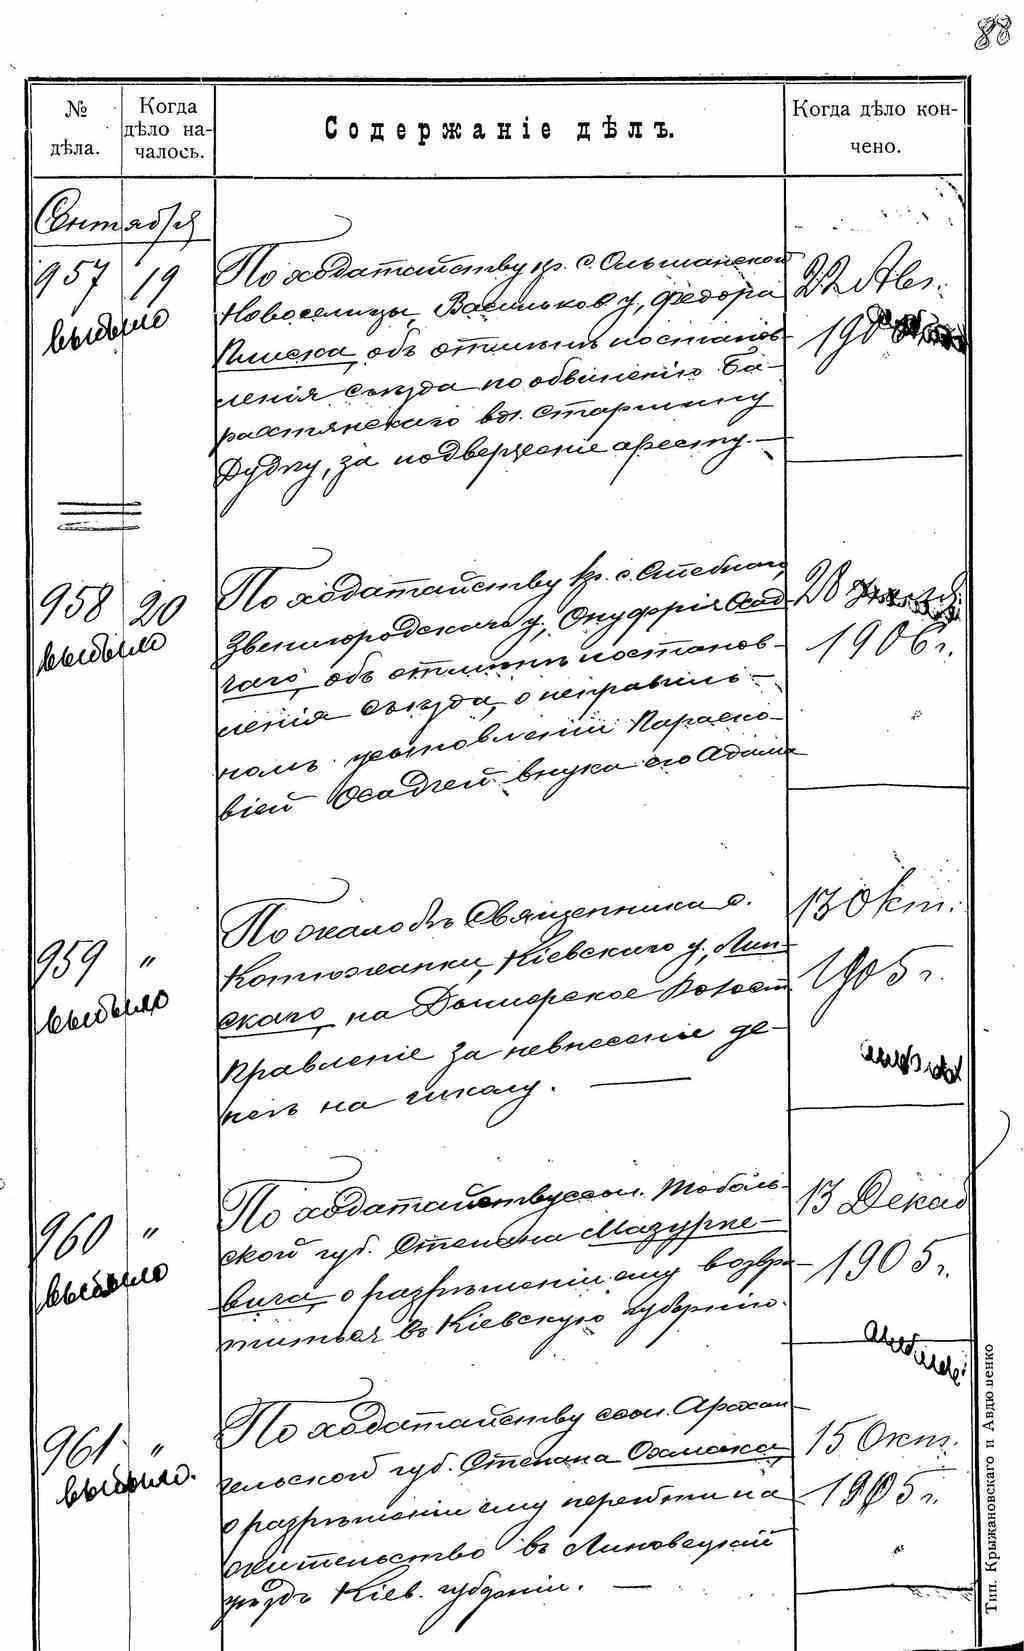 88
№ дѣла.
Когда дѣло на-
чалось.
Содержаніе дѣлъ.
Когда дѣло кон-
чено.
Сентября
957 19
выбыло
По ходатайству кр. с. Ольшанской
Новоселицы, Васильков у, Федора
Плиска, объ отмѣнѣ постанов-
ленія съѣзда по обвиненію Ба-
рахтянскаго вол. Старшину
Дудку, за подверженіе аресту. —
22 Авг.
190
958 20
выбыло
По ходатайству кр. с. Стебнаго,
Звенигородскаго у, Онуфрія Осад-
чаго, объ отмѣнѣ постанов-
ленія съѣзда, о неправиль-
номъ усыновленіи Параско-
віей Осадчей внука его Адама
28
1906 г.
959 "
выбыло
По жалобѣ Священника с.
Котюжанки, Кіевскаго у, Лип-
скаго, на Дымерское Волост
Правленіе за невнесеніе де-
негъ на школу. —
13 Окт.
1905 г.
960 "
выбыло
По ходатайству ссыл. Тоболь-
ской губ. Степана Мазурке-
вича, о разрѣшеніи ему возвра-
титься въ Кіевскую губернію.
13 Декаб
1905 г.
961 "
выбыло.
По ходатайству ссыл. Архан-
гельской губ. Степана Охмака,
о разрѣшеніи ему перейти на
жительство въ Липовецкій
уѣздъ Кіев. губерніи. —
15 Окт.
1905 г.
Тип. Крыжановскаго и Авдюшенко